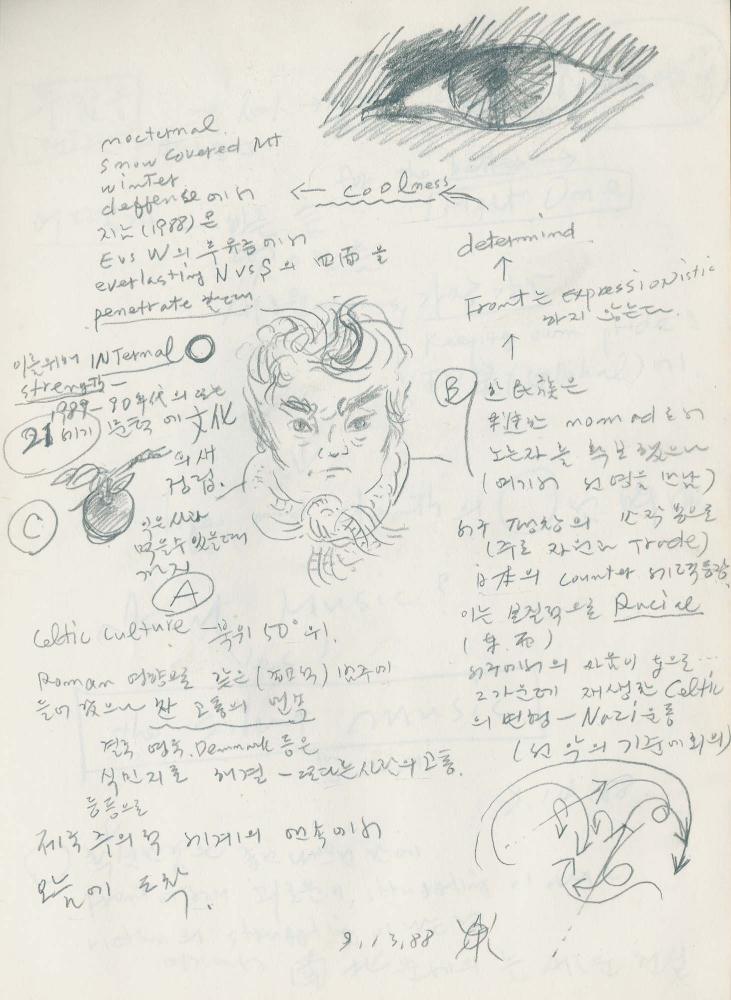 nocternal
snow covered Mt
winter
deffense에서
지는(1988)은
E vs W의 부유층에서
everlasting N vs S의 四面을
penetrate
← coolness
determind
↑
Front는 Expressionistic
하지 않는다.
↑
이를위해 INTernal
strength-
1989-90年代의 또는
21세기 문턱에 文化
의 새
정립.
Ⓒ
익은사과
먹을수있을때
까지
Ⓐ
Ⓑ
한民族은
nomad로서
노는자를 확보했으나
(여기서 선영을 만남)
서구 팽창의 반작용으로
(주로 자원과 Trade)
日本의 counter 세력등장
이는 본질적으로 Racial
(東.西)
서구에서의 싸움이 동으로...
그가운데 재생한 Celtic
의 변형 - Nazi운동
(선악의 기준에 회의)
Celtic Culture - 북위 50°위.
Roman 영향으로 같은 범주에
들어 갔으나 찬 고통의 민족
결국 영국, Denmark 등은
식민지로 해결 - 또다른시작의 고통.
등등으로
제국주의적 세계의 연속에서
오늘에 도착.
9.13.88